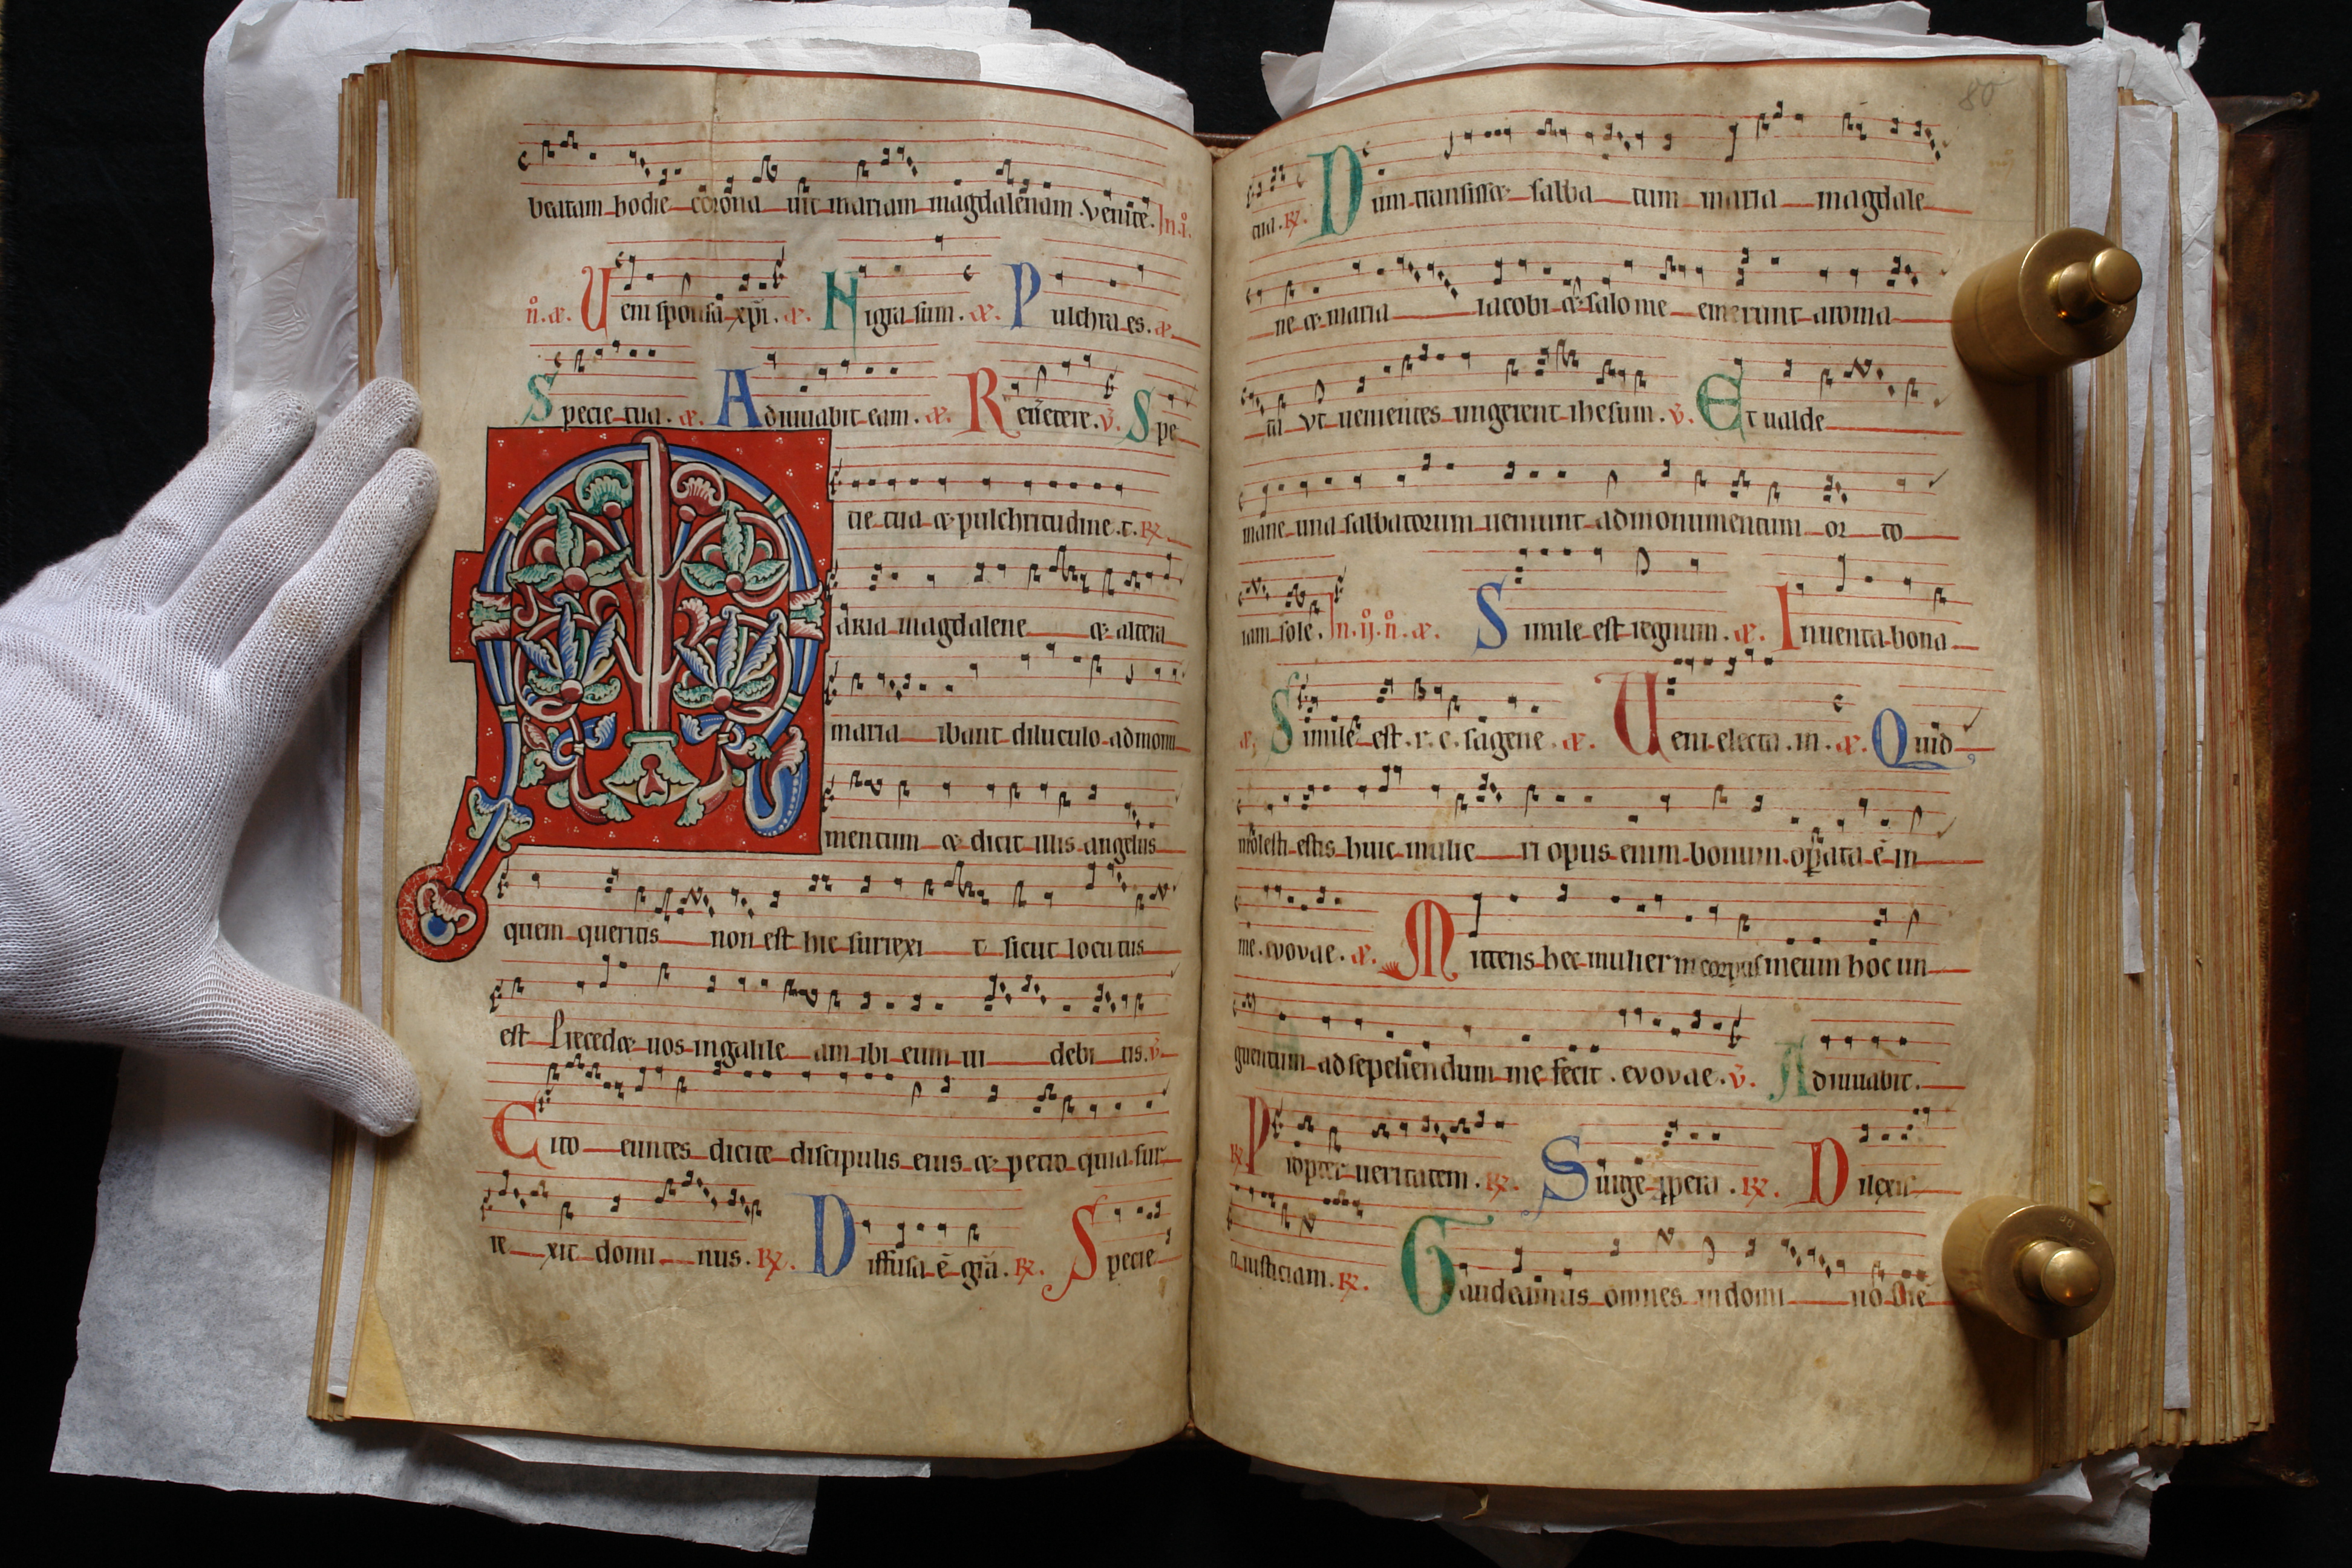 beatam hodie corona uit mariam magdalenam. venite. In .i.
n. a. Ueni sponsa xpi. a. Nigra sum. a. Pulchra es. a.
Specie tua. a. Adiuuabit eam. a. Reuertere. v. Spe
cie tua & pulchritudine .t. R.
MARIA magdalene & altera
maria ibant diluculo ad monu
mentum & dicit illis angelus
quem queritis non est hic surrexi t sicut locutus
est Precedet uos in galile am ibi eum ui debi tis. v.
Cito euntes dicite discipulis eius & petro quia sur
re xit domi nus. R. Diffusa ē grā. R. Specie
80
tua. R. Dum transisset sabba tum maria magdale
ne & maria iacobi & salome emerunt aroma
ta vt uenientes ungerent ihesum. v. Et ualde
mane una sabbatorum ueniunt ad monumentum or to
iam sole. In .ij. n. a. Simile est regnum. a. Inuenta bona
a. Simile est .r. c. sagene. a. Ueni electa .m. a. Quid
molesti estis huic mulie ri opus enim bonum operata ē in
me. evovae. a. Mittens hec mulier in corpus meum hoc un
guentum ad sepeliendum me fecit. evovae. v. Adiuuabit.
R. Propter ueritatem. R. Surge ppera. R. Dilexis
ti iusticiam. R. Gaudeamus omnes in domi no die